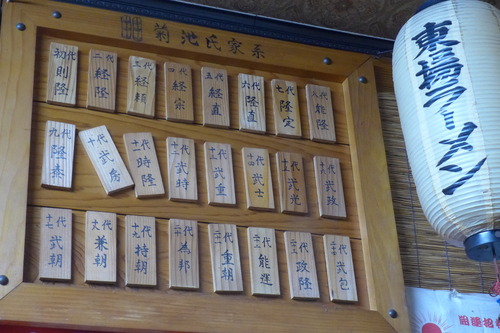 菊池氏家系
初代則隆
二代経隆
三代経頼
四代経宗
五代経直
六代隆直
七代隆定
八代能隆
九代隆泰
十代武房
十一代時隆
十二代武時
十三代武重
十四代武士
十五代武光
十六代武政
十七代武朝
十八代兼朝
十九代持朝
二十代為邦
二十一代重朝
二十二代能運
二十三代政隆
二十四代武包
東ラーメン